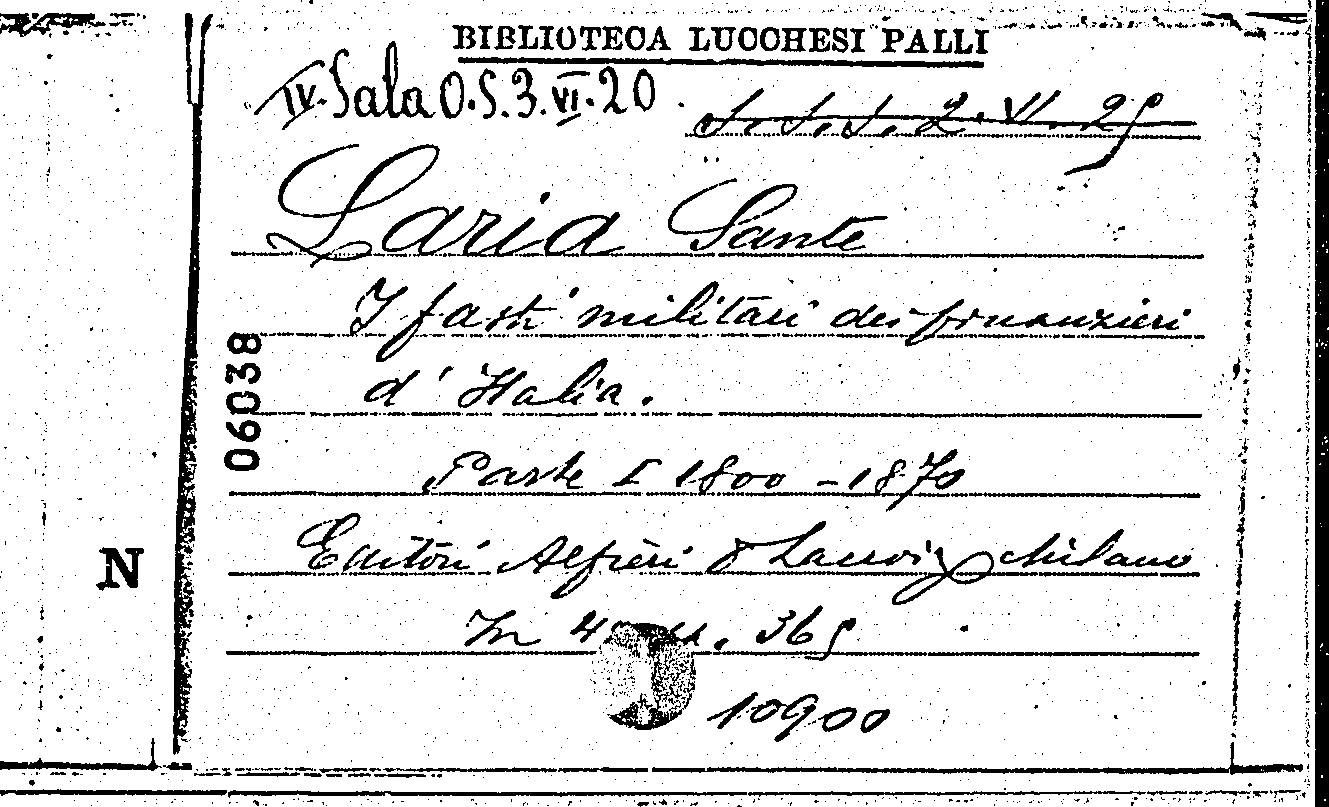 BIBLIOTECA LUCCHESI PALLI
IV. Sala O.S.3.VI.20.
S. S. S. 2. VI. 25
Laria Sante
I fasti militari dei finanzieri
d'Italia.
Parte I 1800 - 1870
Editori Alfieri & Lacroix Milano
In 4° 365
10900
06038
N